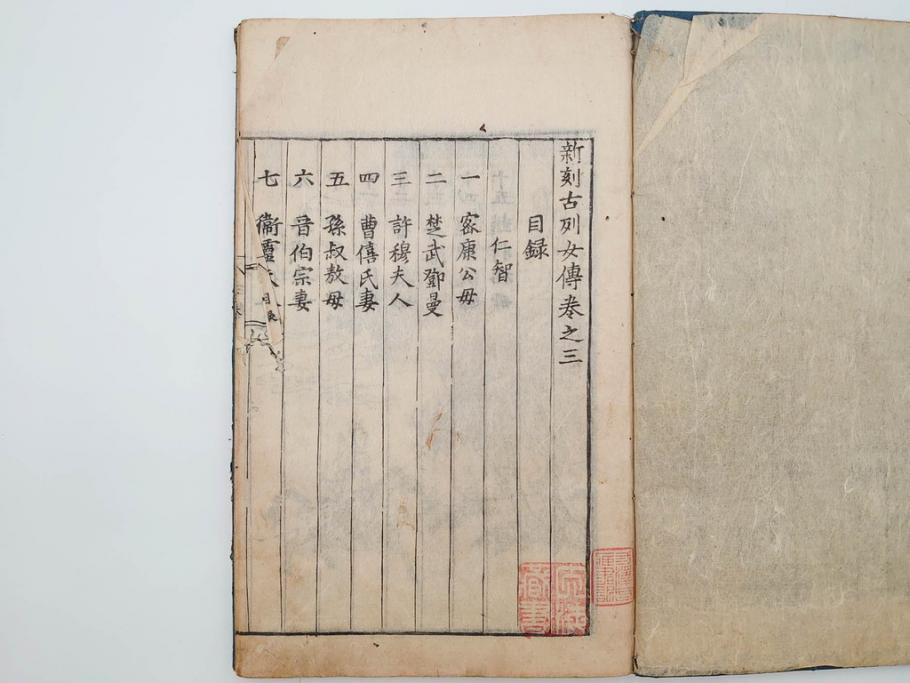 新刻古列女傳卷之三
目錄
仁智
一 密康公母
二 楚武鄧曼
三 許穆夫人
四 曹僖氏妻
五 孫叔敖母
六 晉伯宗妻
七 衞靈夫人
藏書